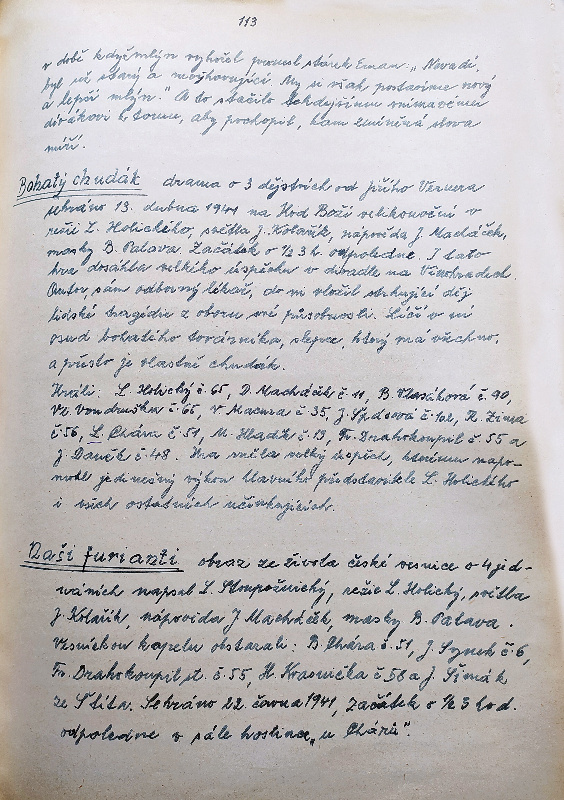 113
v době kdy mlýn vyhořel pronesl stárek Eman: „Nevadí,
byl už starý a nevyhovující. My si však postavíme nový
a lepší mlýn." A to stačilo tehdejšímu vnímavému
divákovi k tomu, aby pochopil, kam zmíněná slova
míří.
Bohatý chudák drama o 3 dějstvích od Jiřího Vernera
sehráno 13. dubna 1941 na Hod Boží velikonoční v
režii L. Holického, světla J. Kolařík, napovídá J. Macháček,
masky B. Patava. Začátek o ½ 3 h. odpoledne. I tato
hra dosáhla velkého úspěchu v divadle na Vinohradech.
Autor, sám odborný lékař, do ní vložil strhující děj
lidské tragédie z oboru své působnosti. Líčí v ní
osud bohatého továrníka, slepce, který má všechno,
a přesto je vlastně chudák.
Hráli: L. Holický č. 65, D. Macháčik č. 11, B. Vlasáková č. 90,
Vl. Vondruška č. 65, V. Macura č. 35, J. č. 102, R. Zima
č. 56, L. Chára č. 51, M. Hladík č. 13, Fr. Drahokoupil č. 55 a
J. Daněk č. 48. Hra měla velký úspěch, kterému napo-
mohl jedinečný výkon hlavního představitele L. Holického
i všech ostatních účinkujících.
Naši furianti obraz ze života české vesnice o 4 jed-
náních napsal L. Stroupežnický, režie L. Holický, světla
J. Kolařík, nápovída J. Macháček, masky B. Patava.
Vesnickou kapelu obstarali: B. Chára č. 51, J. Synek č. 6,
Fr. Drahokoupil st. č. 55, H. Krasnička č. 58 a J. Šimák
ze Stitů. Sehráno 22. června 1941, začátek o ½ 3 hod.
odpoledne v sále hostince „u Chárů".